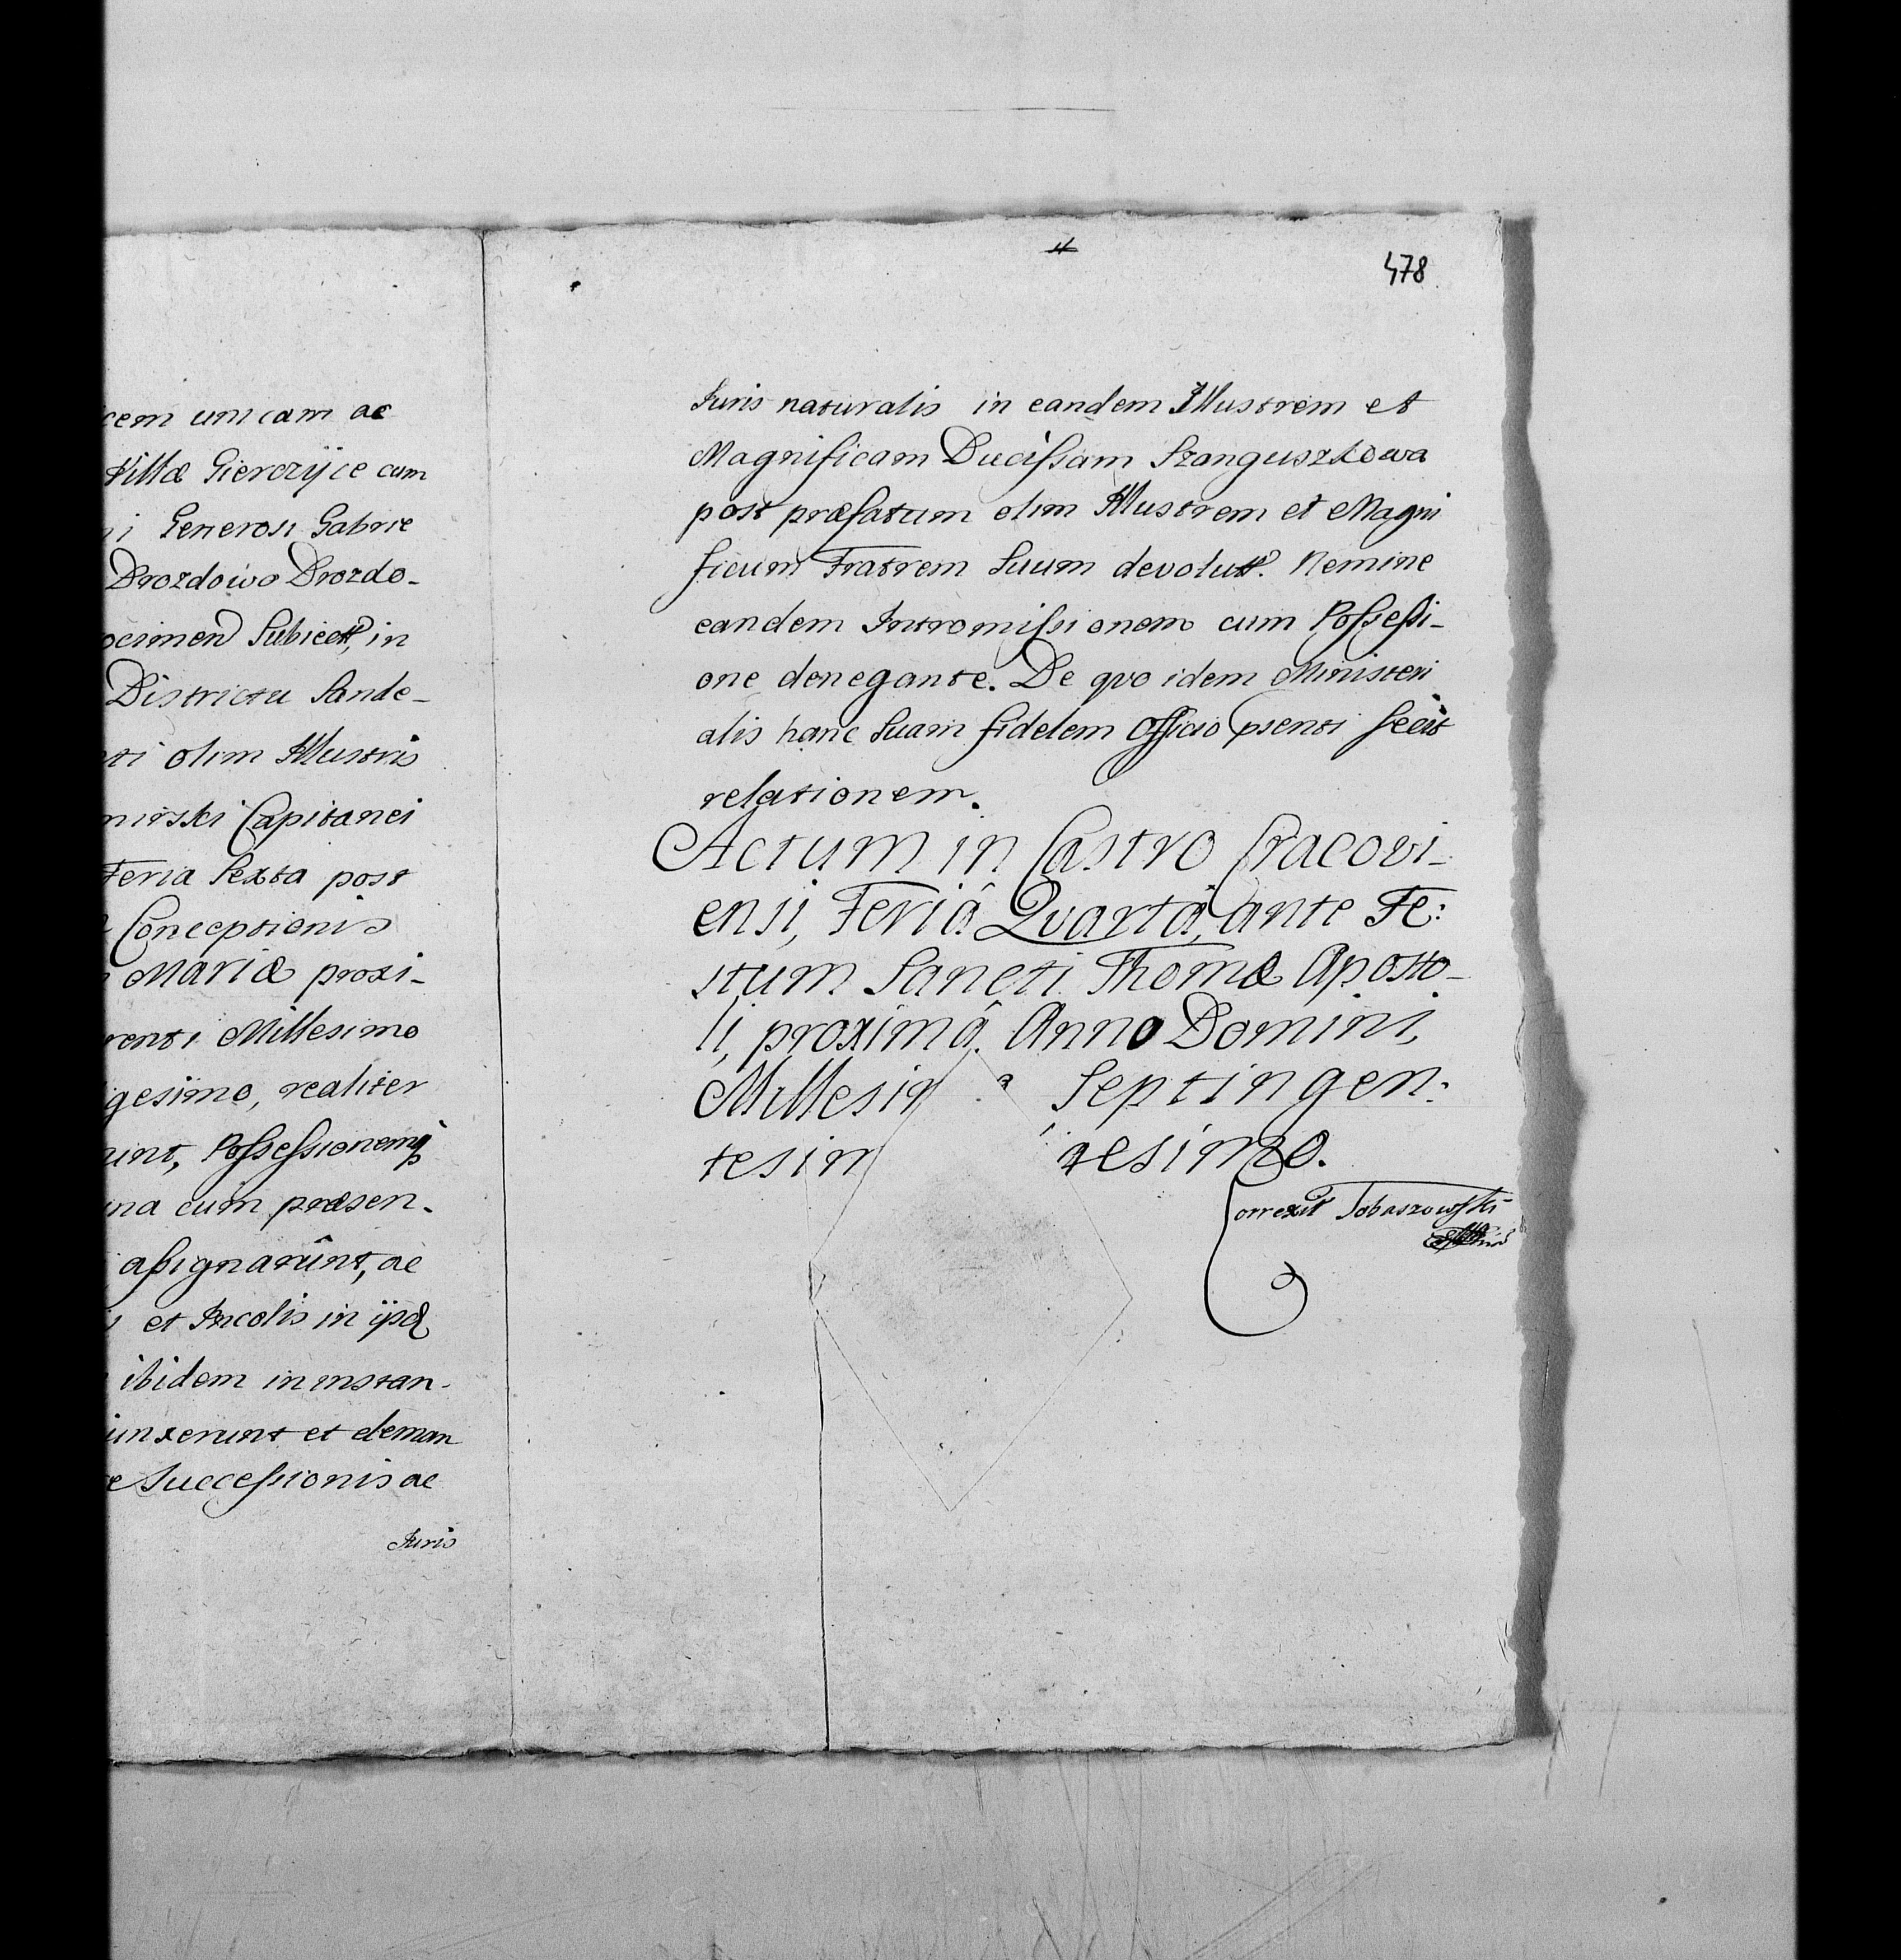 cem unicam ac
Villæ Gierczÿce cum
i Generosi Gabrie
Drozdowo Drozdo-
ocimen Subiectt, in
Districtu Sande-
ti olim Illustris
mirski Capitanei
Feria Sexta post
Conceptionis
Mariæ proxi-
renti Millesimo
gesimo, realiter
unt, Possessionemq
una cum præsen-
assignarûnt, ac
et Incolis in ijsd
ibidem in instan-
iunxerunt et deman
e Successionis ac
Juris
4
478
Juris naturalis in eandem Illustrem et
Magnificam Ducissam Szanguszkowa
post præfatum olim Illustrem et Magni
ficum Fratrem Suum devolutt. Nemine
eandem Intromissionem cum Possessi-
one denegante. De qvo idem Ministeri
alis hanc Suam fidelem Officio psenti fecit
relationem.
Actum in Castro Cracovi-
ensi, Feriâ Qvartâ, ante Fe:
stum Sancti Thomæ Aposto-
li, proximâ. Anno Domini,
Millesim Septingen:
tesim gesimo.
Correxit Tobaszowski